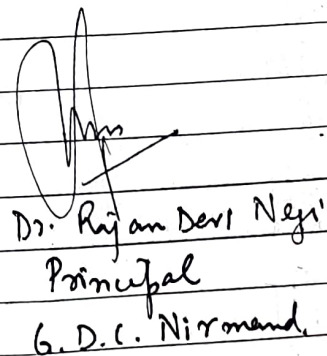 Dr. Rajan Devi Negi
Principal
G. D. C. Nirmand.